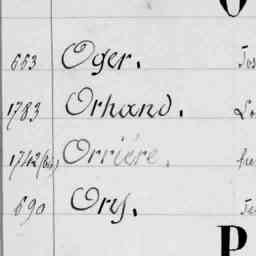 O
663 Oger.
1783 Orhand.
1742 (bis) Orrière.
690 Ory.
P